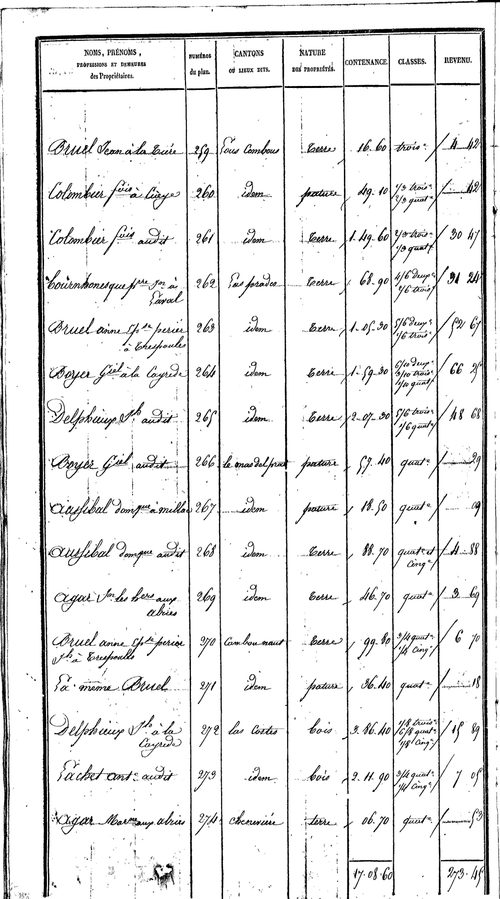 NOMS, PRÉNOMS, PROFESSIONS ET DEMEURES des Propriétaires. NUMÉROS du plan. CANTONS OU LIEUX DITS. NATURE DES PROPRIÉTÉS. CONTENANCE. CLASSES. REVENU.
Bruel Jean à la 259 Terre 16.60 trois.e 4 42
Colombier fois à 260 idem pature 49.10 1/3 trois.e 2/3 quat.e 42
Colombier fois audit 261 idem Terre 1.49.60 2/3 trois.e 1/3 quat.e 30 47
Bournhonesque p.rre J.n à Laval 262 Las prades Terre 68.90 4/6 deux.e 2/6 trois.e 31 24
Bruel anne Ep.se perié à Trespoulls 263 idem Terre 1.05.30 5/6 deux.e 1/6 trois.e 52 67
Boyer G.iel à la Cayrede 264 idem Terre 1.59.30 6/10 deux.e 3/10 trois.e 1/10 quat.e 66 25
Delpheux J.h audit 265 idem Terre 2.07.30 5/6 trois.e 1/6 quat.e 48 68
Boyer G.iel audit 266 le mas del prat pature 57.40 quat.e 29
aussibal dom.que à millau 267 idem pature 18.50 quat.e 09
aussibal dom.que audit 268 idem Terre 88.70 quat.e et cinq.e 4 88
agar J.n les h.ers aux abries 269 idem Terre 46.70 quat.e 3 69
Bruel anne Ep.se perié J.h à Trespoulls 270 Cambounaut Terre 99.80 3/4 quat.e 1/4 cinq.e 6 70
La même Bruel 271 idem pature 36.40 quat.e 18
Delpheux J.h à la Cayrede 272 las Costes bois 3.86.40 1/8 trois.e 6/8 quat.e 1/8 cinq.e 15 89
Lachet ant.e audit 273 idem bois 2.11.90 3/4 quat.e 1/4 cinq.e 7 05
agar aux abries 274 cheneviere terre 06.70 quat.e 53
17.08.60 273.45